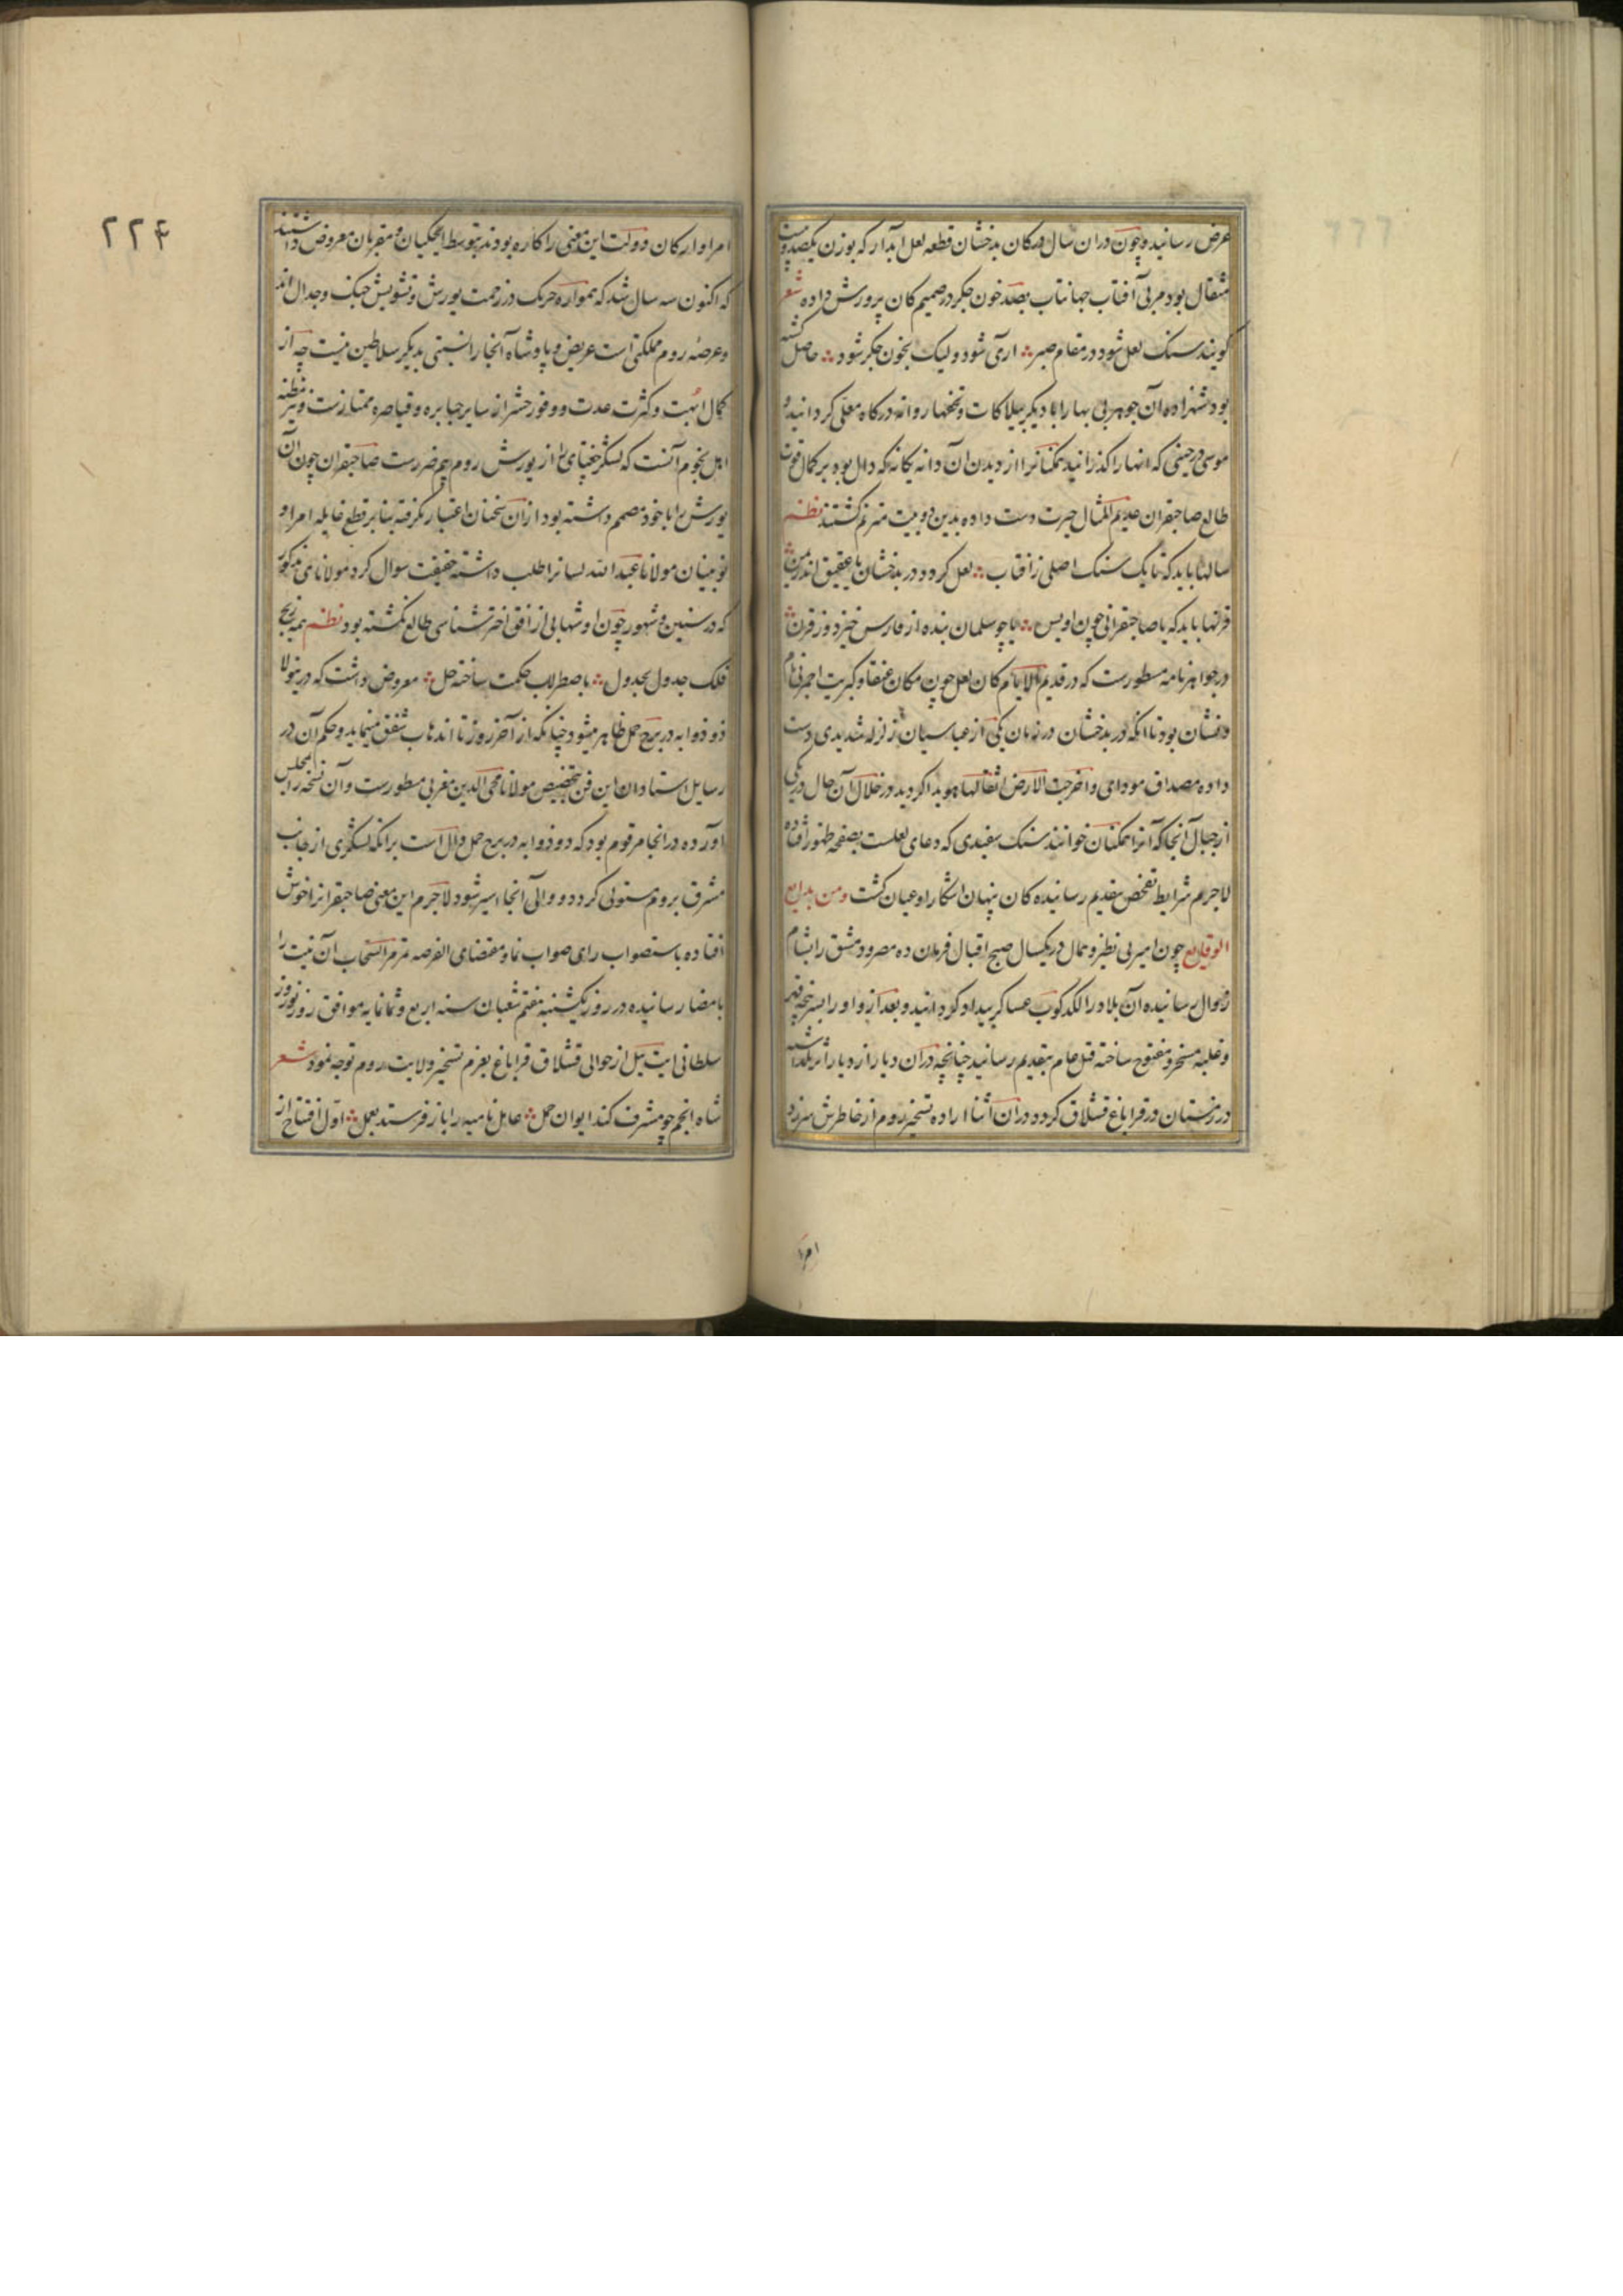 عرض رسانیده و چون دران سال در کان بدخشان قطعه لعل ابدار که بوزن یکصد و بیست
مثقال بود مربی آفتاب جهانتاب بصد خون جکر در صمیم کان پرورش داده شعر
کویند سنک لعل شود در مقام صبر ∴ اری شود ولیک بخون جکر شود ∴ حاصل کشته
بود شهزاده آن جوهر بی بها را با دیکر بیلاکات و تحفها روانه درکاه معلی کردانید و
موسی در حینی که انها را کذرانید همکنانرا از دیدن آن دانه یکانه که دال بود بر کمال قوت
طالع صاحبقران عدیم المثال حیرت دست داده بدین دو بیت مترنم کشتند نظم
سالها باید که تا یک سنک اصلی ز افتاب ∴ لعل کردد در بدخشان یا عقیق اندر یمن ∴
قرنها باید که یا صاحبقرانی چون اویس ∴ یا چو سلمان بنده از فارس خیزد وز قرن ∴
در جواهرنامه مسطورست که در قدیم الایام کان لعل چون مکان عنقا و کبریت احمر نی نام
و نشان بود تا انکه در بدخشان در زمان یکی از عباسیان زلزله شدیدی دست
داده مصداق مودای و اخرجت الارض اثقالها هویدا کردید در خلال آن حال در یکی
از جبال آنجا که آنرا همکنان خوانند سنک سفیدی که دعای لعلست بصفحه ظهور افتاده
لاجرم شرایط تفحص بتقدیم رسانیده کان پنهان اشکارا و عیان کشت ومن بدایع
الوقایع چون امیر بی نظیر و همال در یکسال صبح اقبال فرمان ده مصر و دمشق را بشام
زوال رسانیده آن بلاد را لکد کوب عساکر بیداد کردانید و بعد از و او را بسرپنجه قهر
و غلبه مسخر و مفتوح ساخته قتل عام بتقدیم رسانید چنانچه دران دیار از دیار اثر نکذاشته
در زمستان در قراباغ قشلاق کرد و دران اثنا اراده تسخیر روم از خاطرش سرزد
امرا
۲۲۴
امرا و ارکان دولت این معنی را کاره بودند بتوسط ایچکیان و مقربان معروض داشتند
که اکنون سه سال شد که همواره حریک در زحمت یورش و تشویش جنک و جدال اند
و عرصه روم مملکتی است عریض و پادشاه آنجا را نسبتی بدیکر سلاطین نیست چه از
کمال ابهت و کثرت عدت و وفور حشر از سایر جبابره و قیاصره ممتازست و نیز مظنه
اهل نجوم آنست که لشکر جغتای را از یورش روم بیم ضررست صاحبقران چون آن
یورش را با خود مصمم داشته بود از آن سخنان اعتبار نکرفته بنابر قطع غایله امرا و
نویینان مولانا عبد الله لسانرا طلب داشته حقیقت سوال کرد مولانای مذکور
که در سنین و شهور چون او شهابی از افق اختر شناسی طالع نکشته بود نظم همه زیج
فلک جدول بجدول ∴ باصطرلاب حکمت ساخته حل ∴ معروض داشت که درینولا
ذو ذوابه در برج حمل ظاهر میشود چنانکه از آخر روز تا اندهاب شفق مینماید و حکم آن در
رسایل استادان این فن بتخصیص مولانا محی الدین مغربی مسطورست و آن نسخه را بمجلس
آورده در انجا مرقوم بود که ذو ذوابه در برج حمل دال است برانکه لشکری از جانب
مشرق بروم مستولی کردد و والی آنجا اسیر شود لاجرم این معنی صاحبقرانرا خوش
افتاده باستصواب رای صواب نما و مقتضای الفرصه تمر مر السحاب آن نیت را
بامضا رسانیده در روز یکشنبه هفتم شعبان سنه اربع و ثمانمایه موافق روز نوروز
سلطانی ایت ییل از حوالی قشلاق قراباغ بعزم تسخیر ولایت روم توجه نمود شعر
شاه انجم چو مشرف کند ایوان حمل ∴ عامل نامیه را باز فرستد بعمل ∴ اول افتتاح از